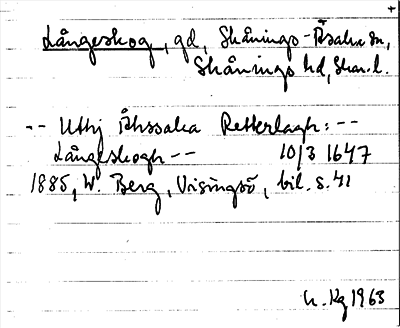 Långeskog, gd, Skånings-Åsaka sn,
Skånings hd, Skar. l.
-- Uthj Åhssaka Retterlagh: --
Långeskogh -- 10/3 1647
1885, W. Berg, Visingsö, bil. s. 41
1963